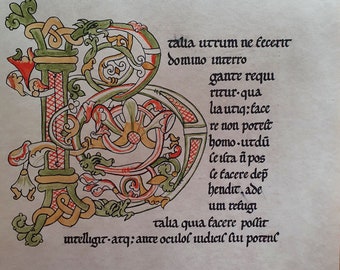 Talia utrum ne fecerit
domino interro
gante requi
ritur · qua
lia utiq; face
re non potest
homo · ut dũ
se ista ñ pos
se facere dep̃
hendit, ade
um refugi
talia quia facere possit
intelligit · atq; ante oculos iudicis sui potens